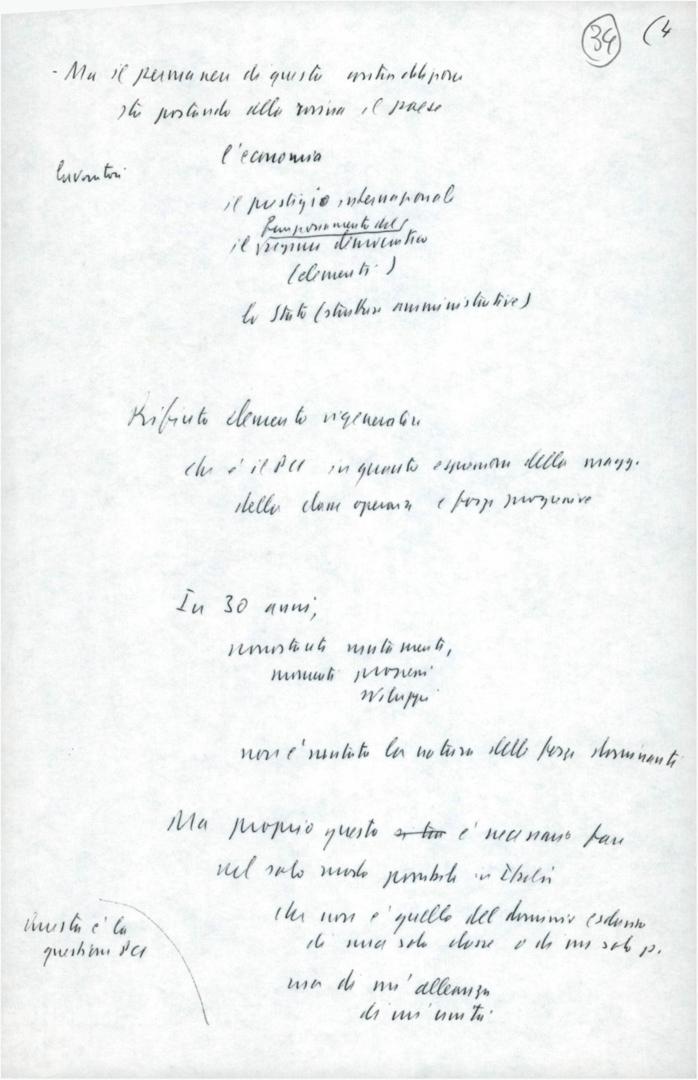 34 (4
- Ma il permanere di questo
sta portando alla rovina il paese
l'economia
Lavoratori
il prestigio internazionale
funzionamento del
il regime democratico
(elementi)
lo Stato (strutture amministrative)
Rifiuto elemento rigeneratore
che è il PCI in quanto espressione della magg.
della classe operaia e forze progressive
In 30 anni,
nonostante mutamenti,
momenti processi
sviluppi
non è mutata la natura delle forze dominanti
Ma proprio questo è necessario fare
nel solo modo possibile in Italia
che non è quello del dominio esclusivo
di una sola classe o di un solo p.
Questa è la
questione PCI
ma di un'alleanza
di un'unità